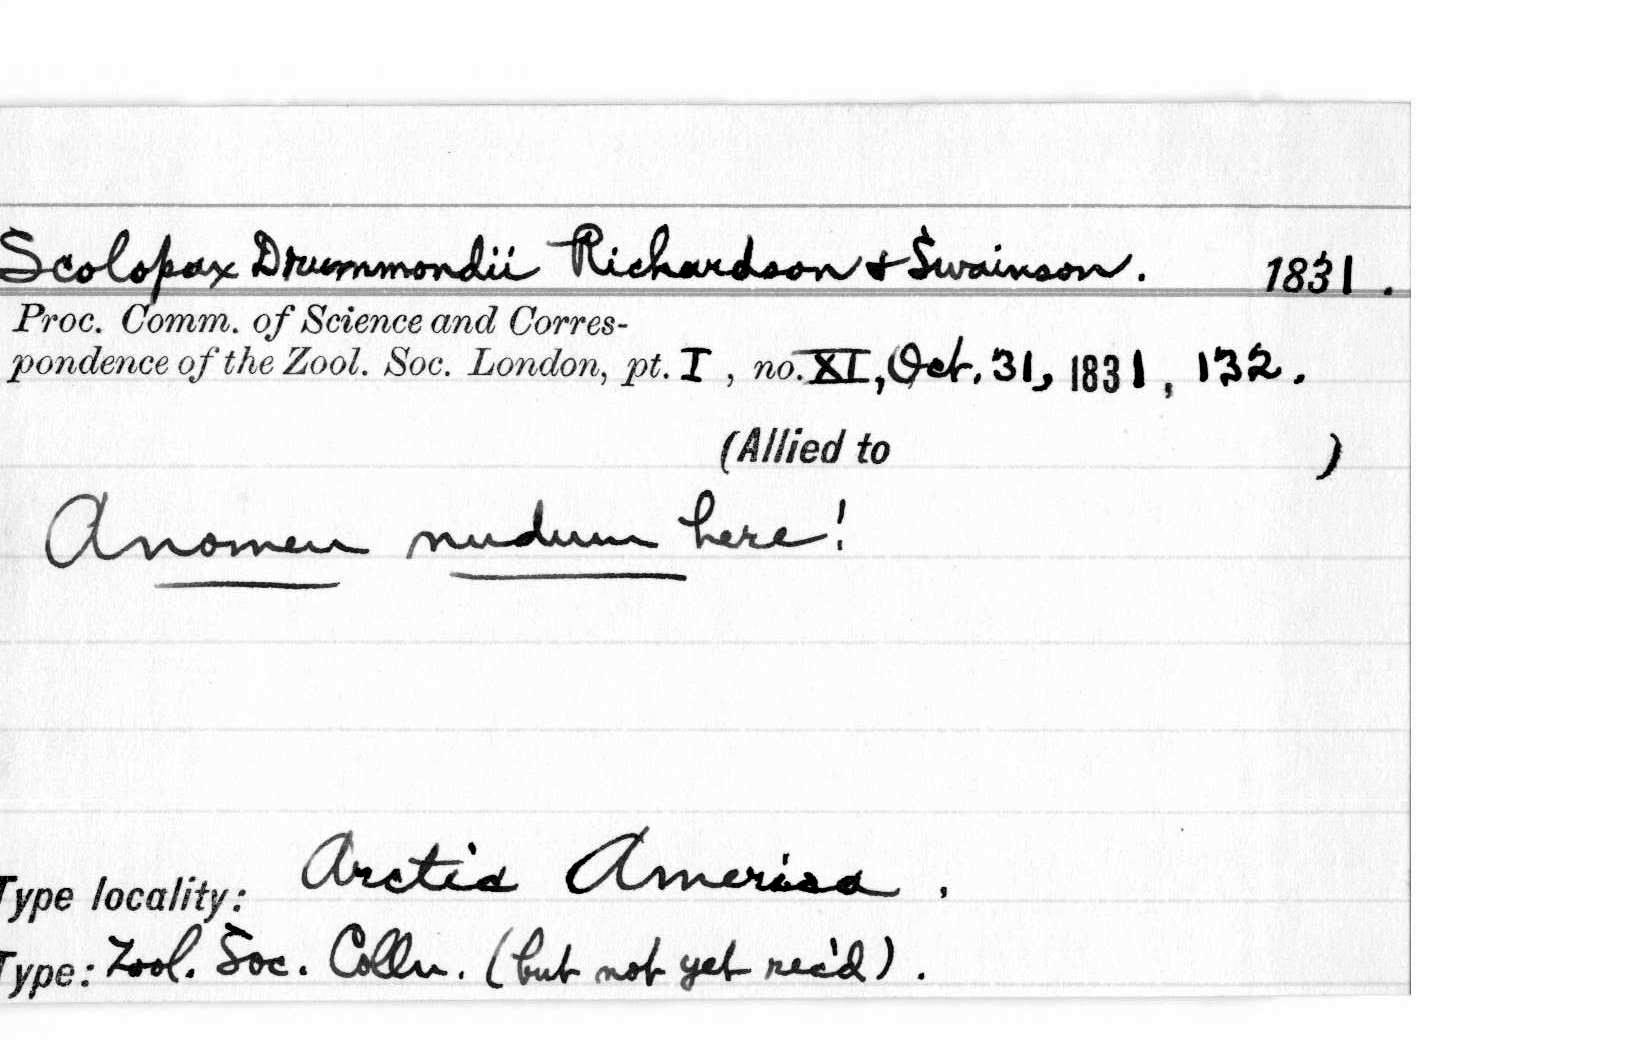 Scolopax Drummondii Richardson & Swainson. 1831.
Proc. Comm. of Science and Corres-
pondence of the Zool. Soc. London, pt. I, no. XI, Oct. 31, 1831, 132.
(Allied to )
A nomen nudum here!
Type locality: Arctic America.
Type: Zool. Soc. Colln. (but not yet rec'd).